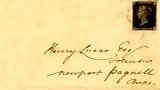 Henry Lucas Esq
Solicitor
Newport Pagnell
Bucks.